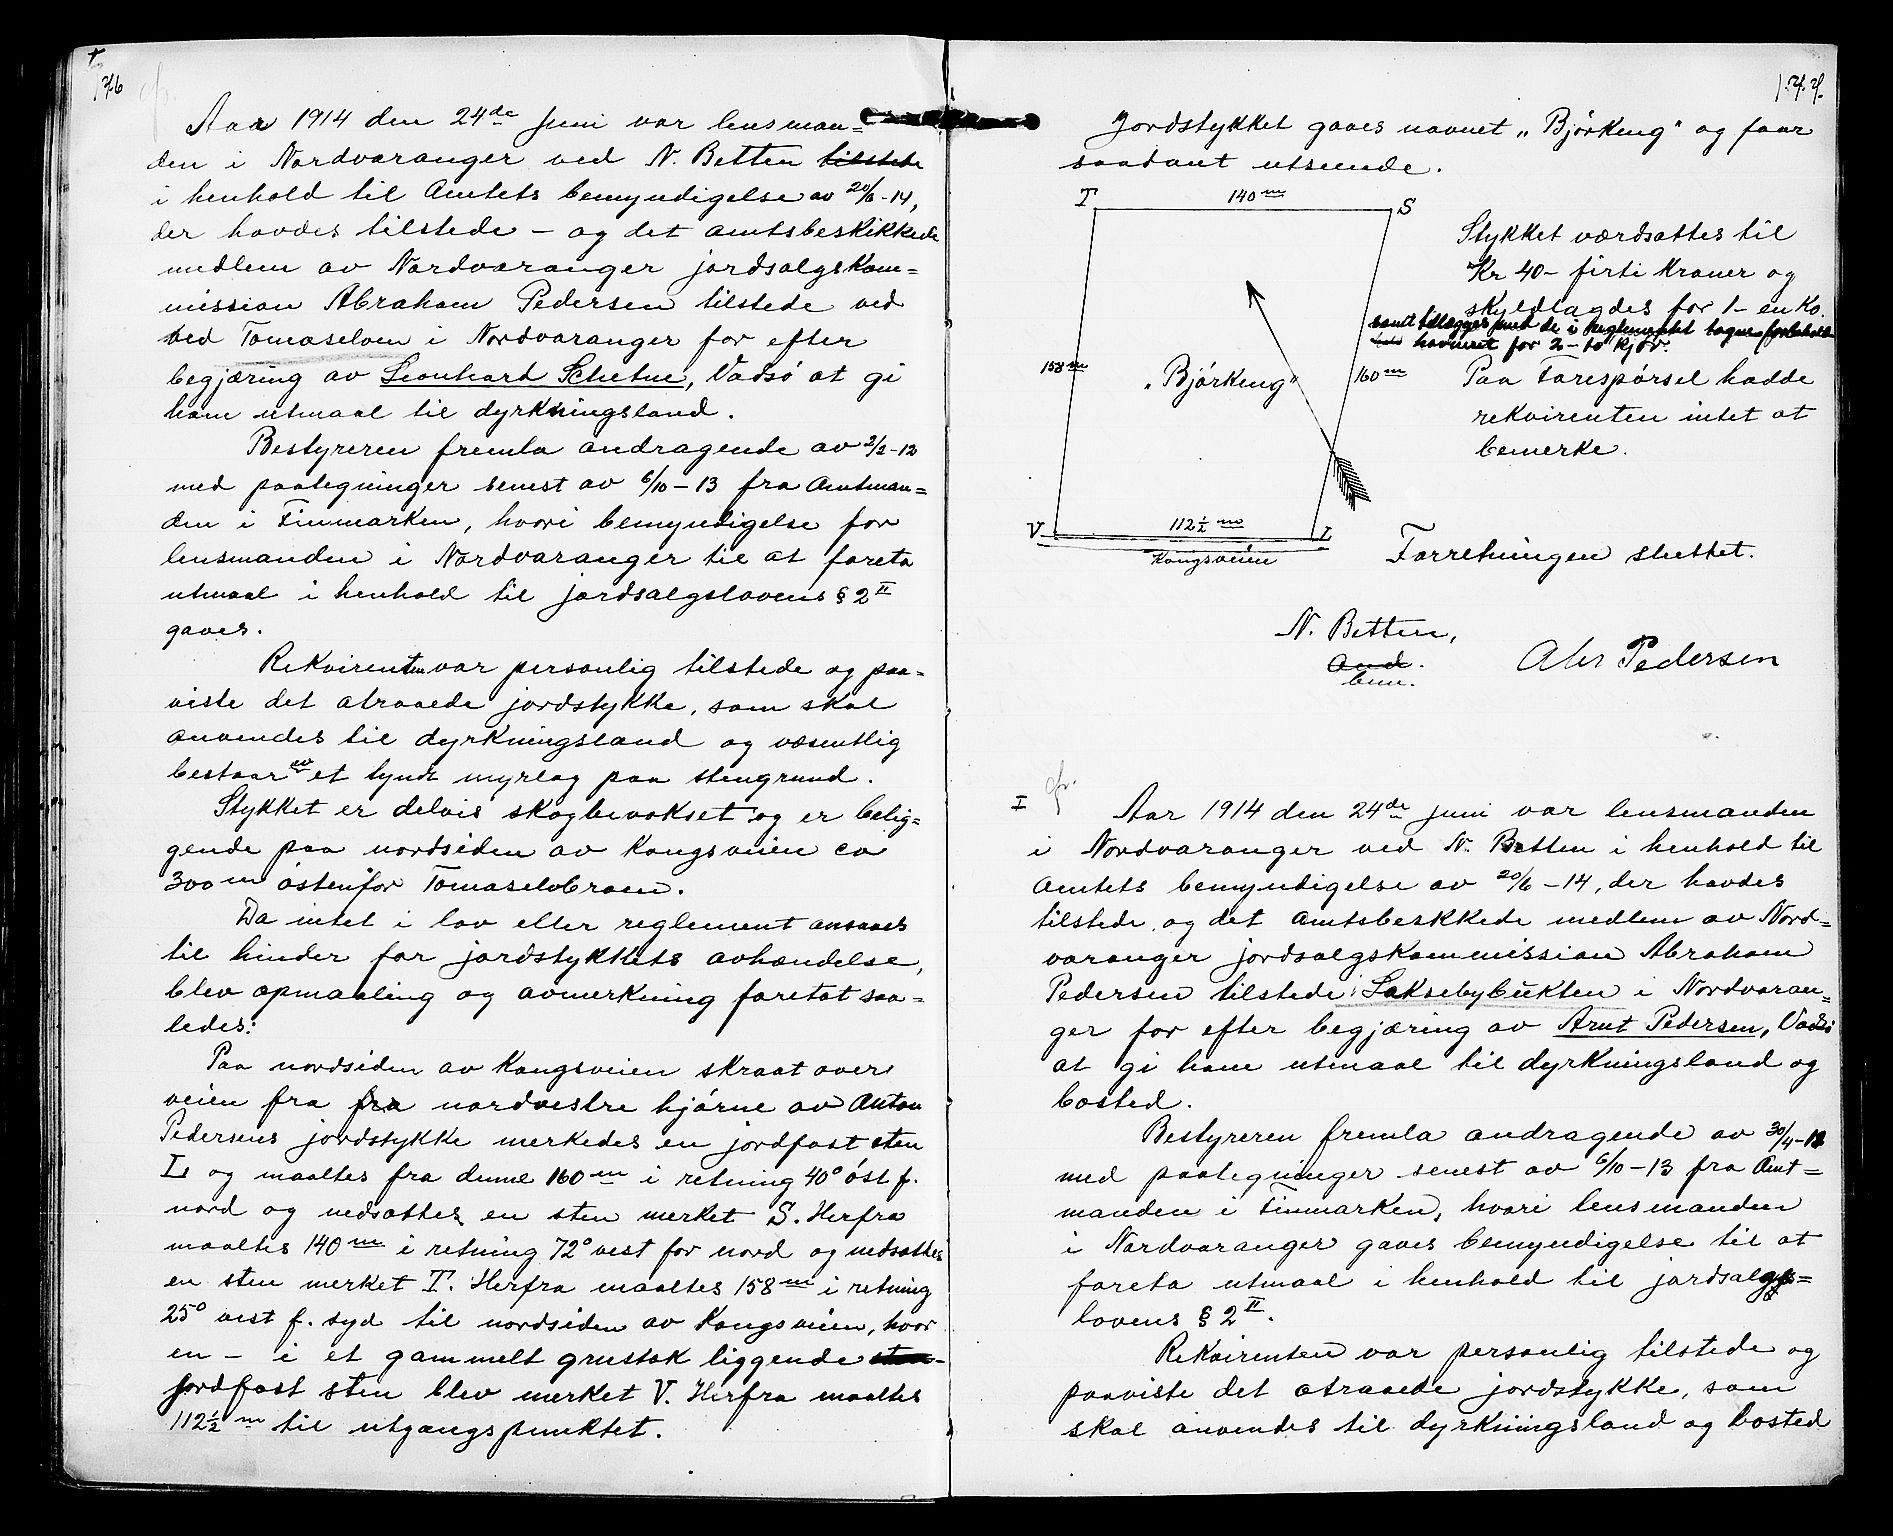 176
Aar 1914 den 24de juni var lensman=
den i Nordvaranger ved N. Betten tilstede
i henhold til Amtets bemyndigelse av 20/6-14,
der havdes tilstede – og det amtsbeskikkede
medlem av Nordvaranger jordsalgskom=
mission Abraham Pedersen tilstede ved
ved Tomaselven i Nordvaranger for efter
begjæring av Leonhard Schetne, Vadsö at gi
ham utmaal til dyrkningsland.
Bestyreren fremla andragende av 2/2-12
med paategninger senest av 6/10-13 fra Amtman=
den i Finmarken, hvori bemyndigelse for
lensmanden i Nordvaranger til at foreta
utmaal i henhold til jordsalgslovens § 2 II
gaves.
Rekvirenten var personlig tilstede og paa=
viste det atraaede jordstykke, som skal
anvendes til dyrkningsland og væsentlig
bestaar av et tyndt myrlag paa stengrund.
Stykket er delvis skogbevokset og er belig=
gende paa nordsiden av Kongsveien ca
300 m östenfor Tomaselvbroen.
Da intet i lov eller reglement ansaaes
til hinder for jordstykkets avhændelse,
blev opmaaling og avmerkning foretat saa=
ledes:
Paa nordsiden av Kongsveien skraat over
veien fra fra nordvestre hjörne av Anton
Pedersens jordstykke merkedes en jordfast sten
L og maaltes fra denne 160 m i retning 40° öst f.
nord og nedsattes en sten merket S. Herfra
maaltes 140 m i retning 72° vest for nord og nedsattes
en sten merket T. Herfra maaltes 158 m i retning
25° vest f. syd til nordsiden av Kongsveien, hvor
en – i et gammelt grustak liggende sten-
jordfast sten blev merket V. Herfra maaltes
112½ m til utgangspunktet.
177.
Jordstykket gaves navnet „Björkeng" og faar
saadant utseende.
T 140 m S
Stykket værdsattes til
Kr 40– firti kroner og
skyldlagdes for 1– en Ko.
samt tillægges med de i Reglementet tagne forbehold
havneret for 2– to kjör.
158 m „Björkeng" 160 m
Paa forespörsel hadde
rekvirenten intet at
bemerke.
V 112½ m L
Kongsveien
Forretningen sluttet.
N. Betten,
bem.
Abr Pedersen
I cfr.
Aar 1914 den 24de juni var lensmanden
i Nordvaranger ved N. Betten i henhold til
Amtets bemyndigelse av 20/6-14, der havdes
tilstede, og det amtsbeskkede medlem av Nord=
varanger jordsalgskommission Abraham
Pedersen tilstede i Laksebybukten i Nordvaran=
ger for efter begjæring av Arnt Pedersen, Vadsö
at gi ham utmaal til dyrkningsland og
bosted.
Bestyreren fremla andragende av 30/4-12
med paategninger senest av 6/10-13 fra Amt=
manden i Finmarken, hvori lensmanden
i Nordvaranger gaves bemyndigelse til at
foreta utmaal i henhold til jordsalgs=
lovens § 2 II.
Rekvirenten var personlig tilstede og
paaviste det atraaede jordstykke, som
skal anvendes til dyrkningsland og bosted